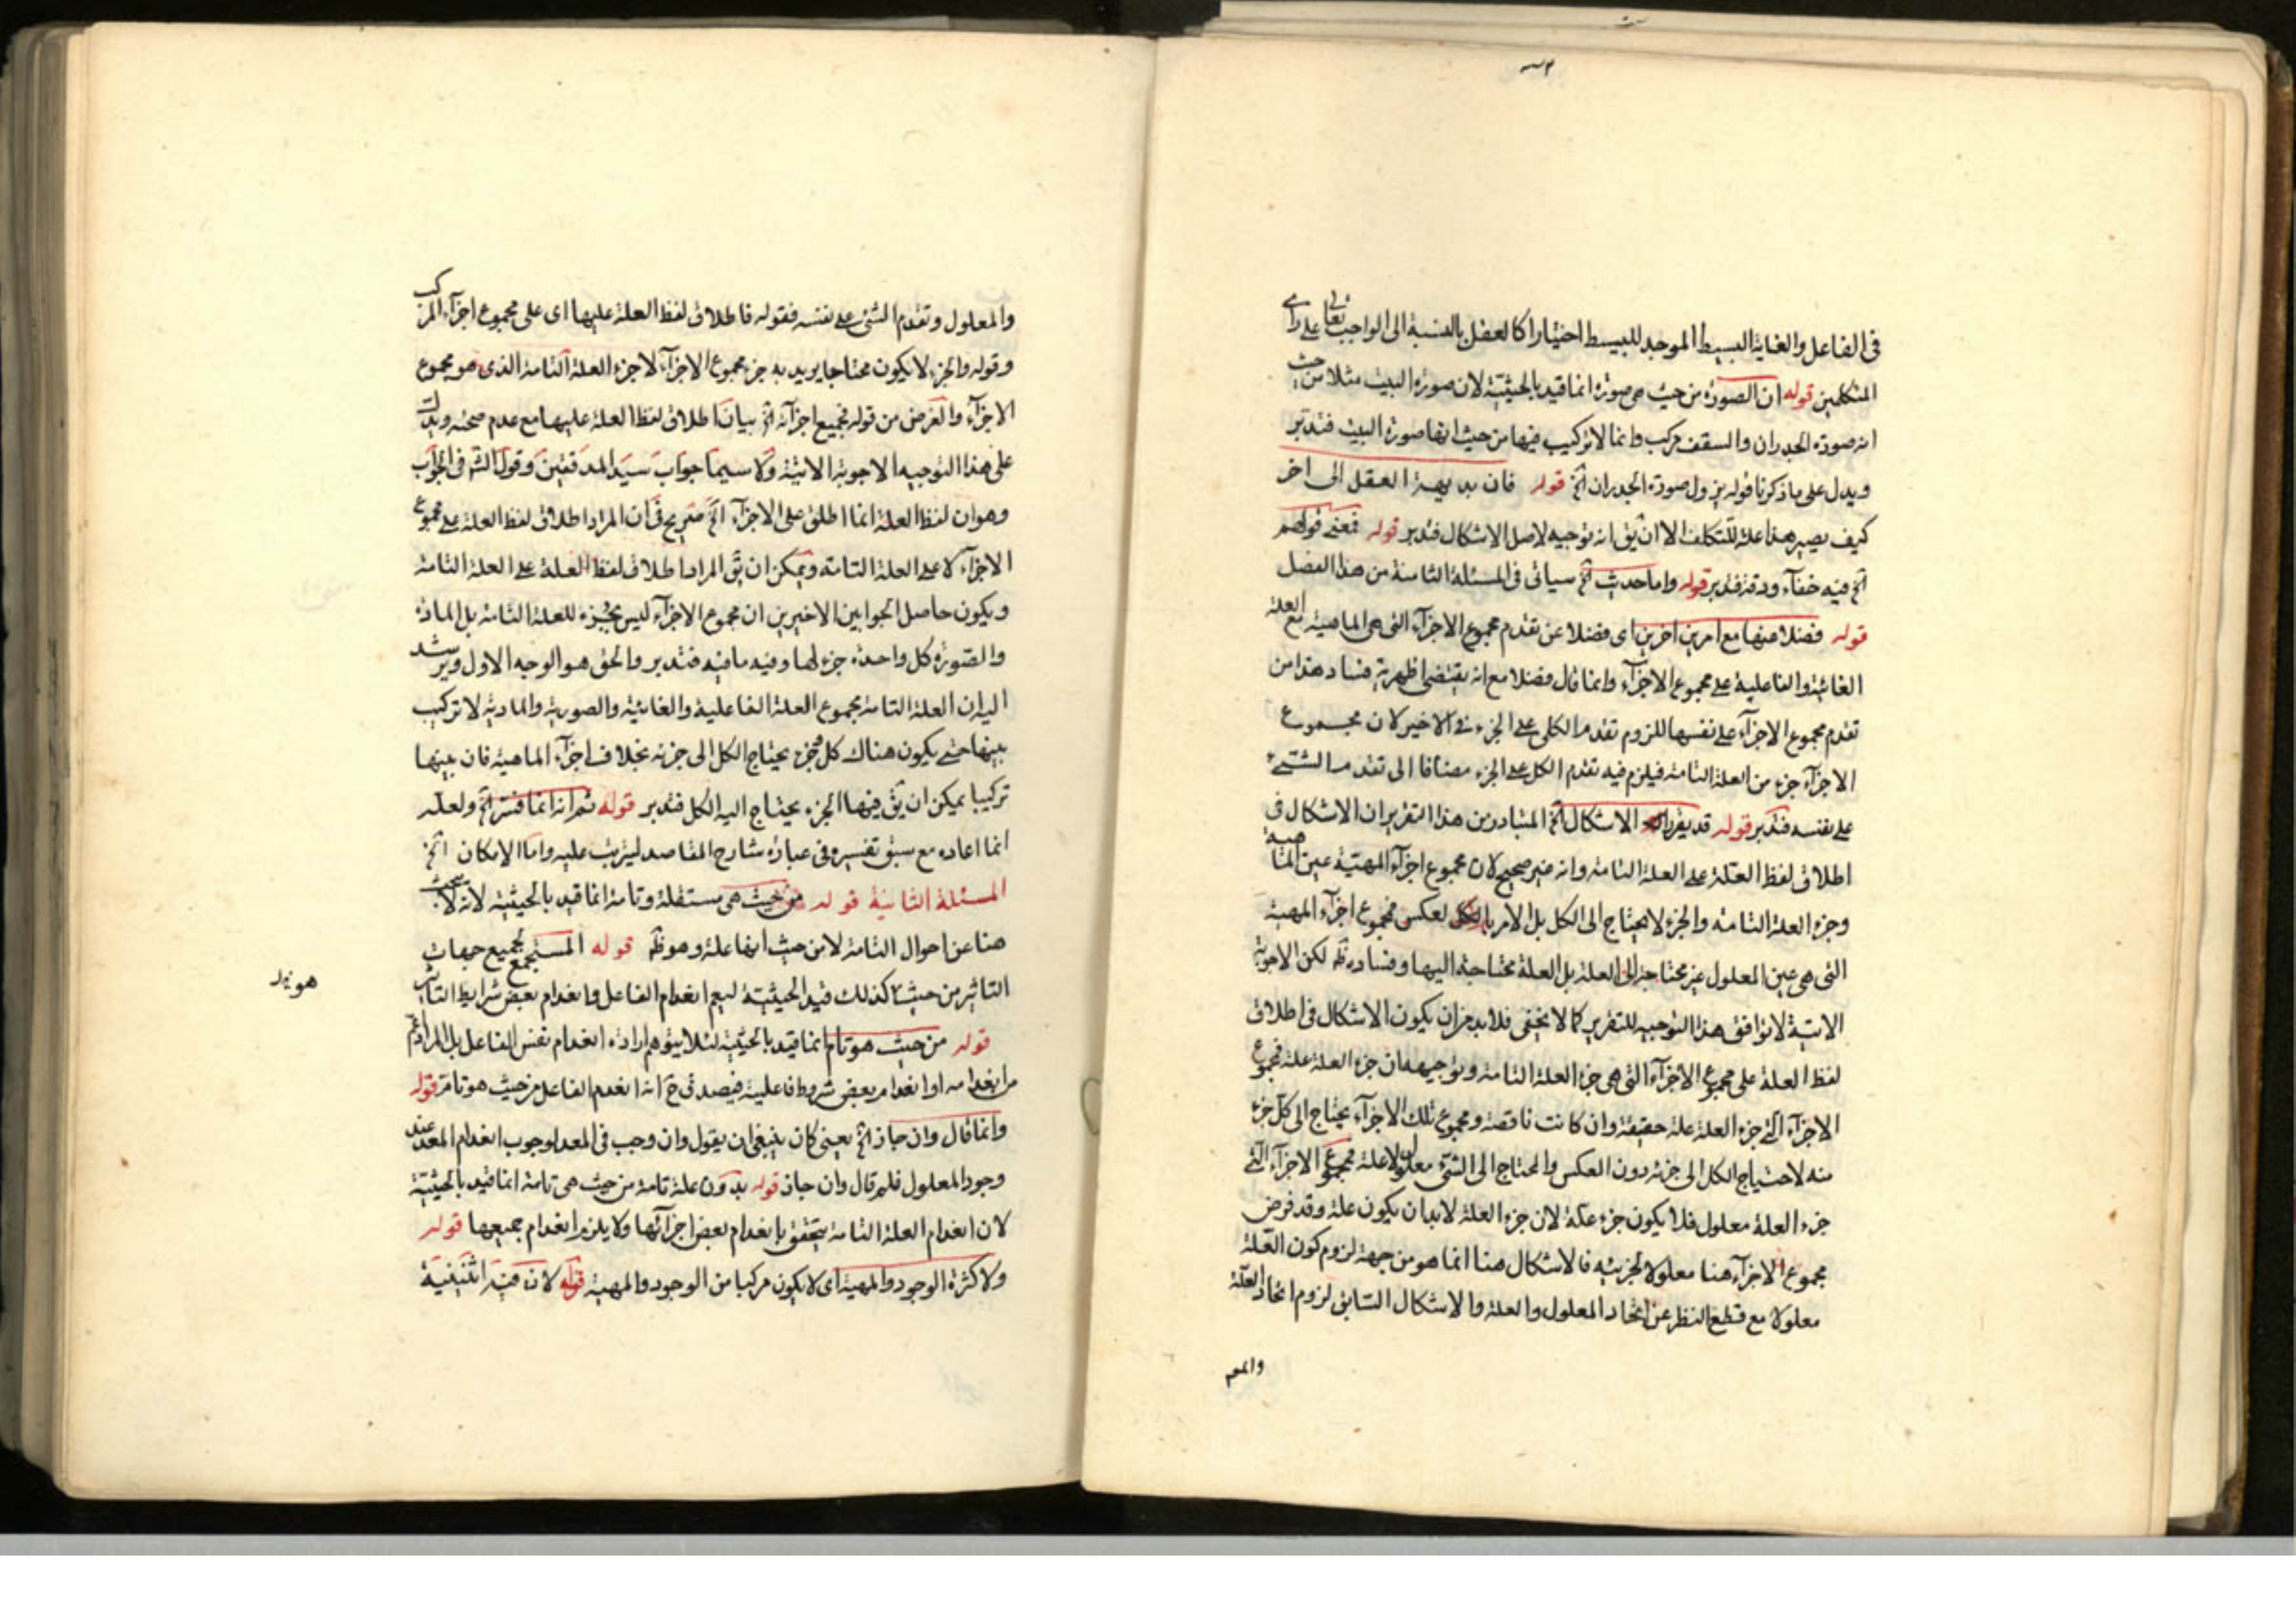 في الفاعل والغاية البسيط الموجد للبسيط اختيارا كالعقل بالنسبة الى الواجب تعالى على راى
المتكلمين قوله ان الصورة من حيث هي صورة انما قيد بالحيثية لان صورة البيت مثلا من حيث
انه صورة الجدران والسقف مركب وانما لا تركيب فيها من حيث انها صورة البيت فتدبر
ويدل على ما ذكرنا قوله يزول صورة الجدران الخ قوله فان بديهة العقل الى اخر
كيف يصير هذا علة للتكلف الا ان يق انه توجيه لاصل الاشكال فتدبر قوله فمعنى قولهم
الخ فيه خفاء ودقة فتدبر قوله واما حديث الخ سياتى فى المسئلة الثامنة من هذا الفصل
قوله فضلا منها مع امرين اخرين اى فضلا عن تقدم مجموع الاجزاء التى هى الماهية مع العلة
الغائية والفاعلية على مجموع الاجزاء وانما قال فضلا مع انه يقتضى اظهرية فساد هذا من
تقدم مجموع الاجزاء على نفسها للزوم تقدم الكلى على الجزء فى الاخير لان مجموع
الاجزاء جزء من العلة التامة فيلزم فيه تقدم الكل على الجزء مضافا الى تقدم الشئ
على نفسه فتدبر قوله قد يقرر الاشكال الخ المتبادر من هذا التقرير ان الاشكال فى
اطلاق لفظ العلة على العلة التامة وانه غير صحيح لان مجموع اجزاء المهية عين الماهية
وجزء العلة التامة والجزء لا يحتاج الى الكل بل الامر بالعكس فمجموع اجزاء المهية
التى هى عين المعلول غير محتاجة الى العلة بل العلة محتاجة اليها وفساده ظ لكن الاجوبة
الاتية لا توافق هذا التوجيه للتقرير كما لا يخفى فلا بد من ان يكون الاشكال فى اطلاق
لفظ العلة على مجموع الاجزاء التى هى جزء العلة التامة وتوجيهه ان جزء العلة علة فمجموع
الاجزاء التى جزء العلة علة حقيقة وان كانت ناقصة ومجموع تلك الاجزاء يحتاج الى كل جزء
منه لاحتياج الكل الى جزئه دون العكس والمحتاج الى الشئ معلول لا علة فمجموع الاجزاء التى
جزء العلة معلول فلا يكون جزء علة لان جزء العلة لا بد ان يكون علة وقد فرض
مجموع الاجزاء هنا معلولا لجزئيه فالاشكال هنا انما هو من جهة لزوم كون العلة
معلولا مع قطع النظر عن اتحاد المعلول والعلة والاشكال السابق لزوم اتحاد العلة
والمع
والمعلول وتقدم الشئ على نفسه فقوله فاطلاق لفظ العلة عليها اى على مجموع اجزاء المركب
وقوله والجزء لا يكون محتاجا يريد به جزء مجموع الاجزاء لا جزء العلة التامة الذى هو مجموع
الاجزاء والغرض من قوله فجميع اجزائه الخ بيان اطلاق لفظ العلة عليها مع عدم صحته ويدل
على هذا التوجيه الاجوبة الاتية ولا سيما جواب سيد المدققين وقول الش فى الجواب
وهو ان لفظ العلة انما اطلق على الاجزاء الخ صريح فى ان المراد اطلاق لفظ العلة على مجموع
الاجزاء لا على العلة التامة ويمكن ان يق المراد اطلاق لفظ العلة على العلة التامة
ويكون حاصل الجوابين الاخيرين ان مجموع الاجزاء ليس بجزء للعلة التامة بل المادة
والصورة كل واحدة جزء لها وفيه ما فيه فتدبر والحق هو الوجه الاول ويرشد
اليه ان العلة التامة مجموع العلة الفاعلية والغائية والصورية والمادية لا تركيب
بينها حتى يكون هناك كل وجزء يحتاج الكل الى جزئه بخلاف اجزاء الماهية فان بينها
تركيبا يمكن ان يق فيها الجزء يحتاج اليه الكل فتدبر قوله ثم انه انما فسر الخ ولعله
انما اعاده مع سبق تفسيره فى عبارة شارح المقاصد ليترتب عليه واما الامكان الخ
المسئلة الثانية قوله من حيث هى مستقلة وتامة انما قيد بالحيثية لانه لا يبحث
هنا عن احوال التامة لا من حيث انها علة وهو ظ قوله المستجمع لجميع جهات
التاثير من حيث كذلك قيد الحيثية ليعم انعدام الفاعل وانعدام بعض شرايط التاثير
قوله من حيث هو تام انما قيد بالحيثية لئلا يتوهم ارادة انعدام نفس الفاعل بل المراد اعم
من انعدامه او انعدام بعض شروط فاعليته فيصدق ح انه انعدم الفاعل من حيث هو تام قوله
وانما قال وان جاز الخ يعنى كان ينبغى ان يقول وان وجب فى المعد لوجوب انعدام المعد عند
وجود المعلول فلم قال وان جاز قوله بدون علة تامة من حيث هى تامة انما قيد بالحيثية
لان انعدام العلة التامة يتحقق بانعدام بعض اجزائها ولا يلزم انعدام جميعها قوله
ولا كثرة الوجود والمهية اى لا يكون مركبا من الوجود والمهية قوله لان فيه اثنينية